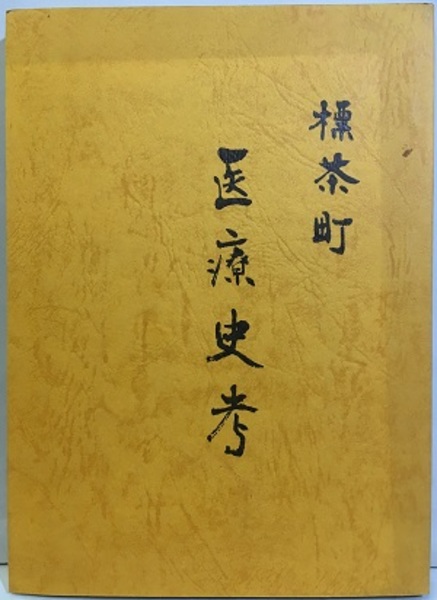 標茶町
医療史考